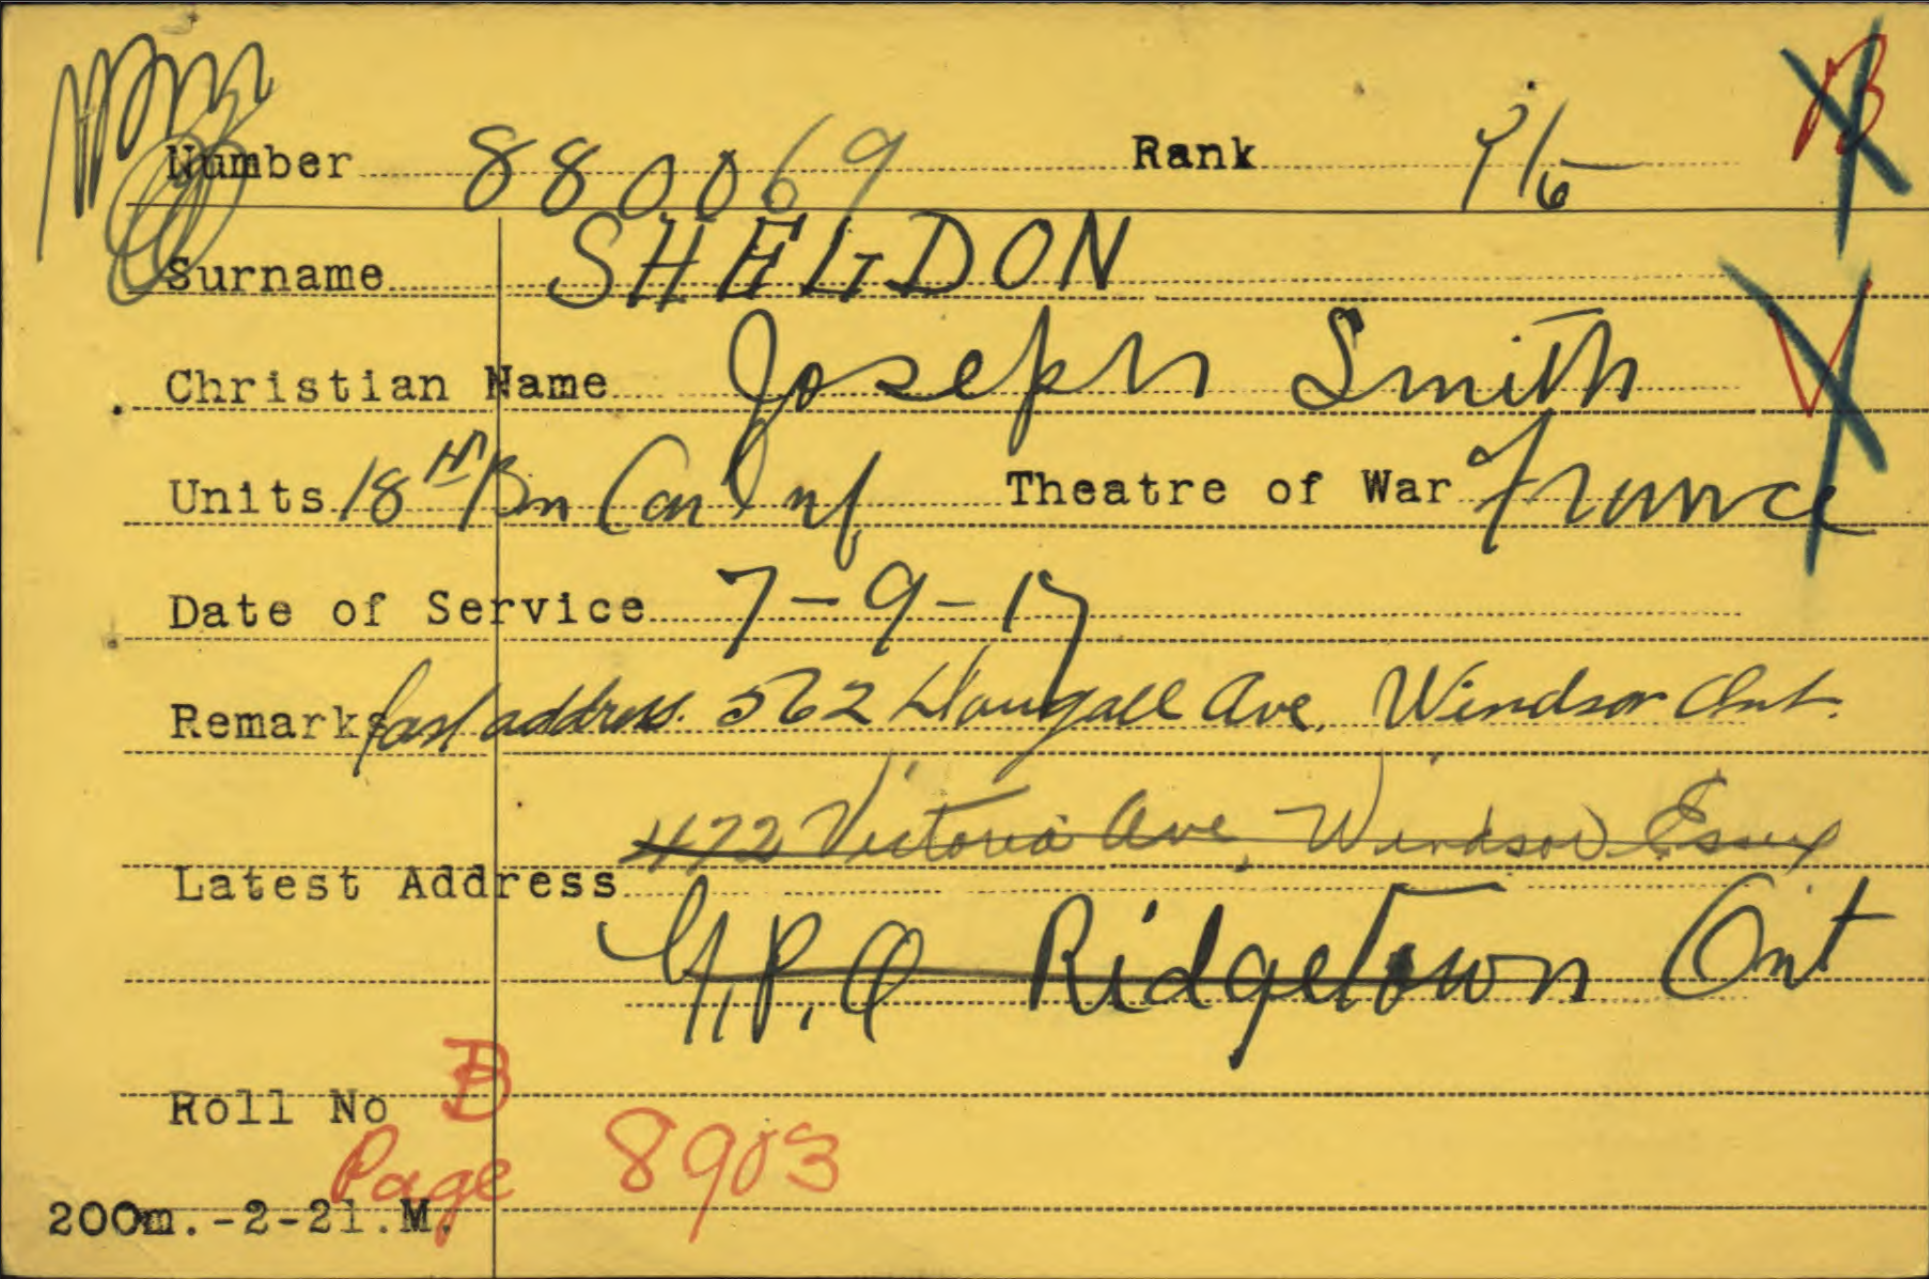 Number 880069 Rank
Surname SHELDON
Christian Name Joseph Smith
Units 18th Bn Can Inf Theatre of War France
Date of Service 7-9-17
Remarks last address. 562 Dougall Ave. Windsor Ont.
472 Victoria Ave, Windsor Essex
Latest Address
G.P.O Ridgetown Ont
Roll No B
Page 8903
200m.-2-21.M.